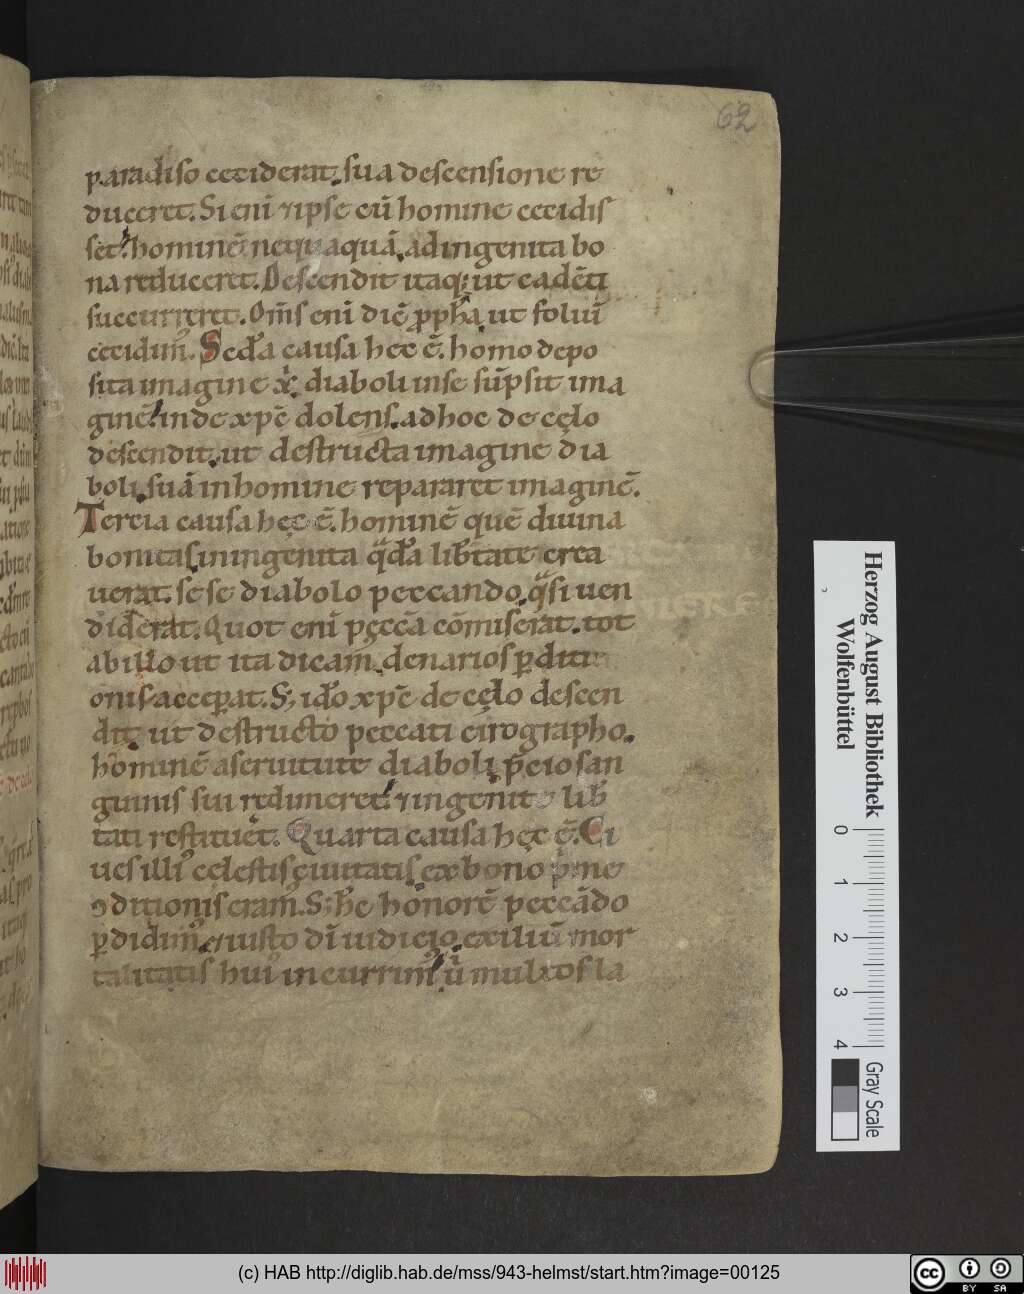 62
paradiso ceciderat. sua descensione re
duceret. Si eni̅ ⁊ ipse cu̅ homine cecidis
set: homine̅ nequaqua̅ ad ingenita bo
na reduceret. Descendit itaq; ut cade̅ti
succurreret. Om̅s eni̅ dic̅ ꝓph̅a. ut foliu̅
cecidim᷒. Sed̅a causa hec e̅. homo depo
sita imagine x̅i. diaboli in se su̅psit ima
gine̅. inde xpc̅ dolens. ad hoc de cęlo
descendit. ut destructa imagine dia
boli. sua̅ in homine repararet imagine̅.
Tercia causa hęc e̅. homine̅ que̅ diuina
bonitas in ingenita q̅da̅ lib̅tate crea
uerat. sese diabolo peccando. q̅si uen
diderat. Quot eni̅ pęcca̅ co̅miserat. tot
ab illo ut ita dicam. denarios ꝑditi
onis acceꝑat. S; ido̅ xpc̅ de cęlo descen
dit. ut destructo peccati cirographo.
homine̅ a seruitute diaboli. p̅cio san
guinis sui redimeret. ⁊ ingenite lib̅
tati restitueret. Quarta causa hęc e̅. Ci
ues illi᷒ cęlestis ciuitatis. ex bono p̅me
ↄditionis eram᷒. S; h̅c honore̅ pecca̅do
ꝑdidim᷒. ⁊ iusto di̅ iudicio. exiliu̅ mor
talitatis hui᷒ incurrim᷒. u̅ multos la
Herzog August Bibliothek
Wolfenbüttel
0 1 2 3 4
Gray Scale
(c) HAB http://diglib.hab.de/mss/943-helmst/start.htm?image=00125
cc BY SA